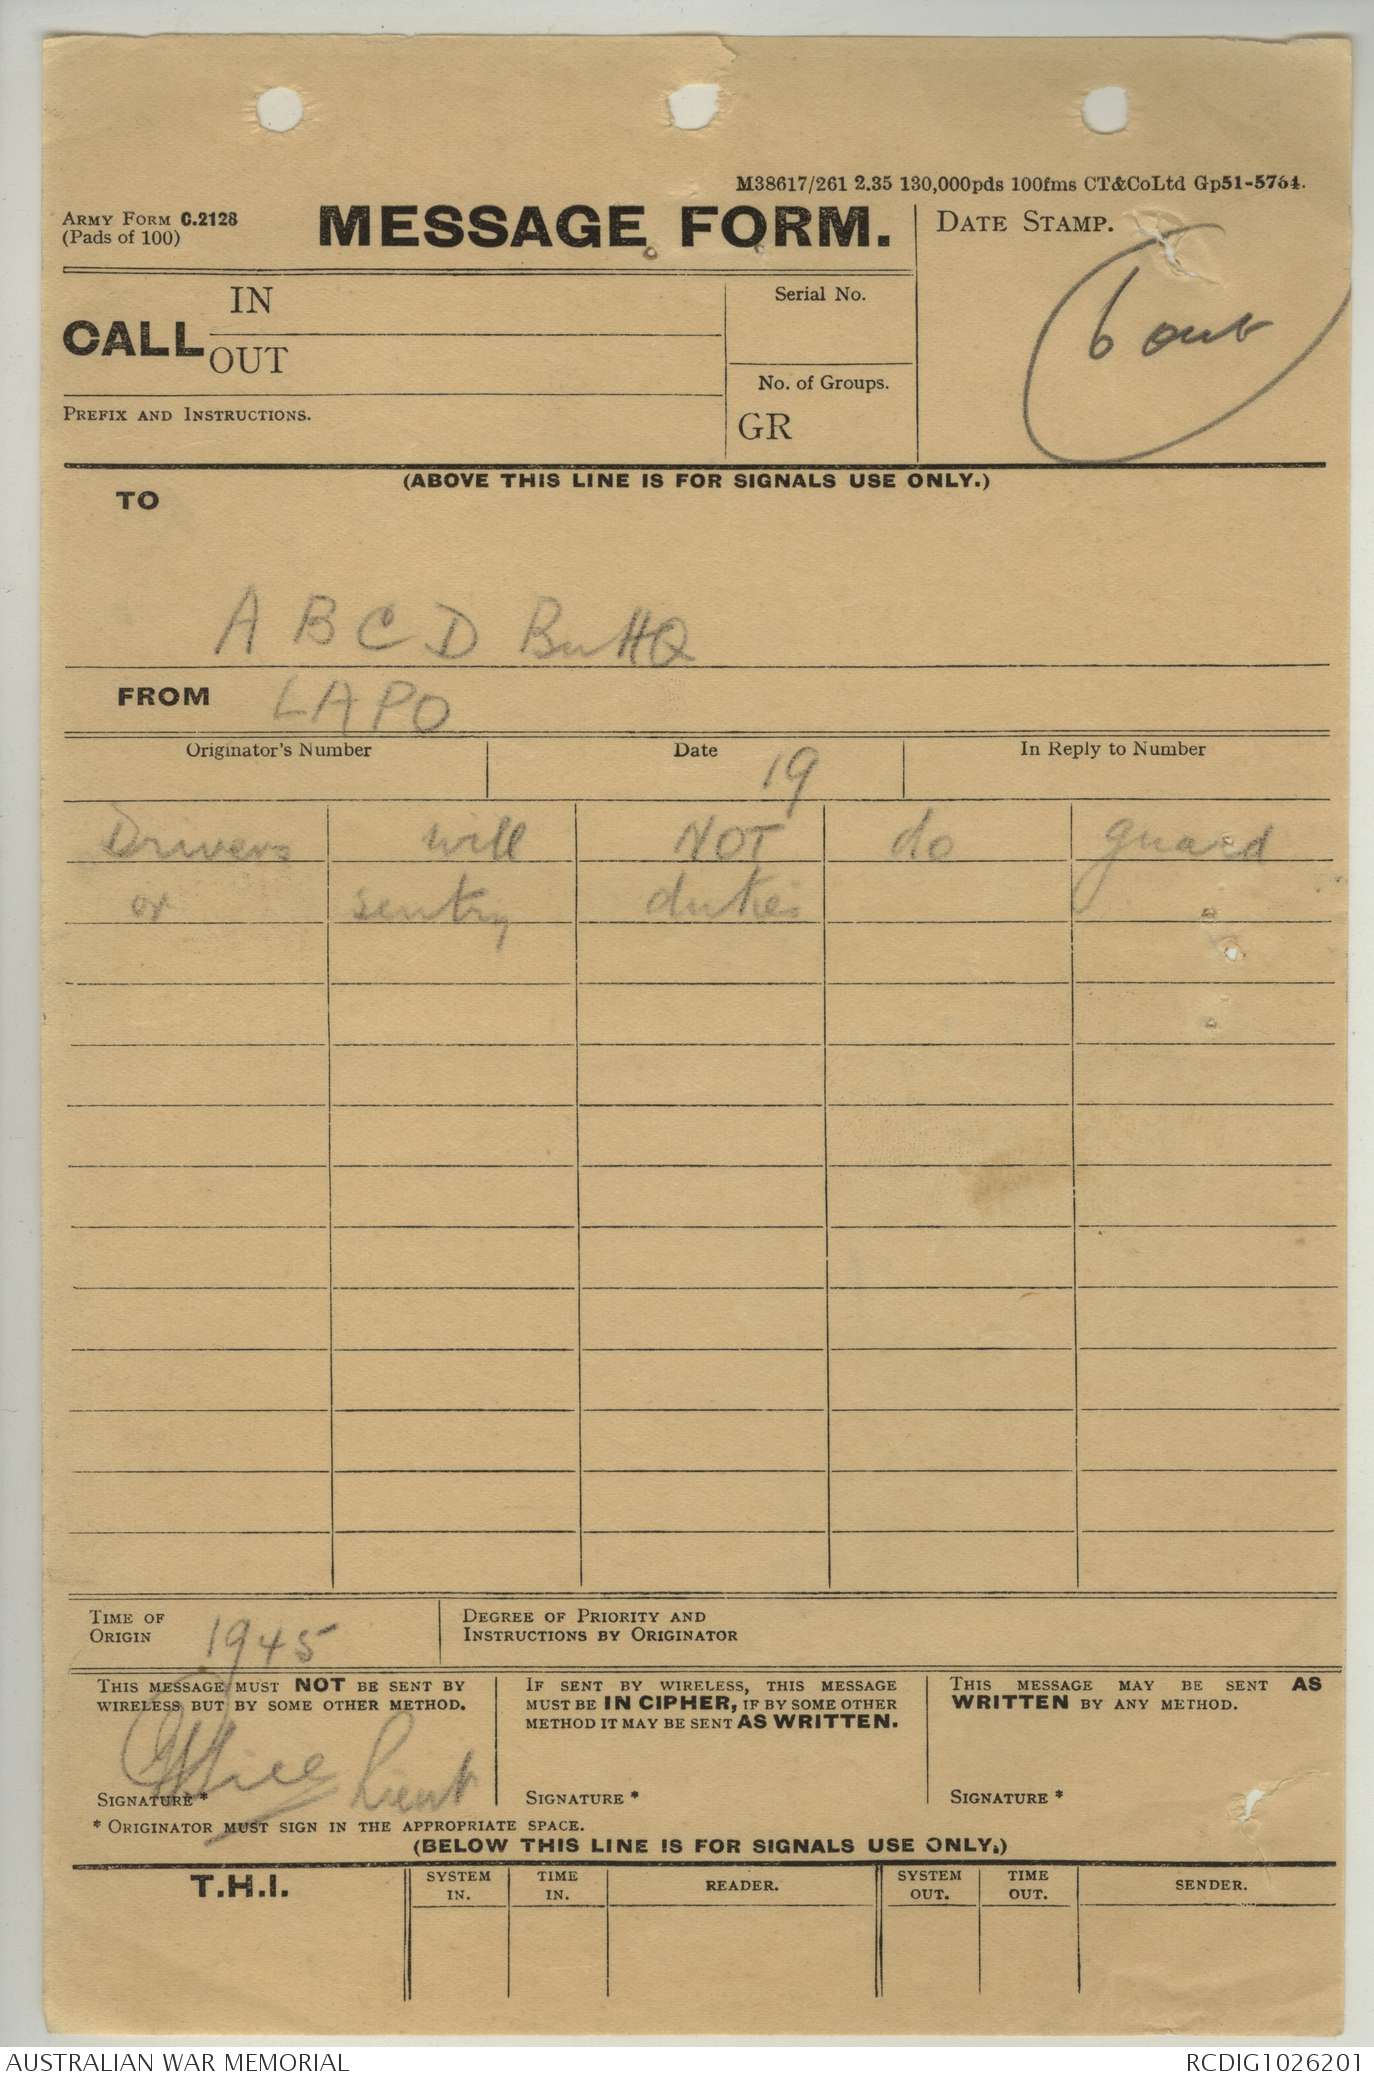 M38617/261 2.35 130,000pds 100fms CT&CoLtd Gp51-5764.
ARMY FORM C.2128
(Pads of 100)
MESSAGE FORM.
DATE STAMP.
6 out
CALL
IN
OUT
Serial No.
No. of Groups.
GR
PREFIX AND INSTRUCTIONS.
(ABOVE THIS LINE IS FOR SIGNALS USE ONLY.)
TO
A B C D Bn HQ
FROM LAPO
Originator's Number Date 19 In Reply to Number
Drivers will NOT do guard
or sentry duties
TIME OF
ORIGIN 1945
DEGREE OF PRIORITY AND
INSTRUCTIONS BY ORIGINATOR
THIS MESSAGE MUST NOT BE SENT BY
WIRELESS BUT BY SOME OTHER METHOD.
Lieut
SIGNATURE *
IF SENT BY WIRELESS, THIS MESSAGE
MUST BE IN CIPHER, IF BY SOME OTHER
METHOD IT MAY BE SENT AS WRITTEN.
SIGNATURE *
THIS MESSAGE MAY BE SENT AS
WRITTEN BY ANY METHOD.
SIGNATURE *
* ORIGINATOR MUST SIGN IN THE APPROPRIATE SPACE.
(BELOW THIS LINE IS FOR SIGNALS USE ONLY.)
T.H.I.
SYSTEM
IN.
TIME
IN.
READER.
SYSTEM
OUT.
TIME
OUT.
SENDER.
AUSTRALIAN WAR MEMORIAL
RCDIG1026201